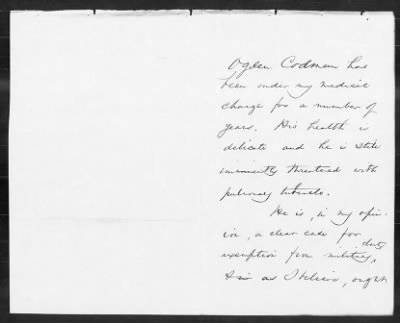 Ogden Codman has
been under my medical
charge for a number of
years. His health is
delicate and he is still
imminently threatened with
pulmonary
He is, in my opin-
ion, a clear case for
exemption from military duty,
as I believe, ought